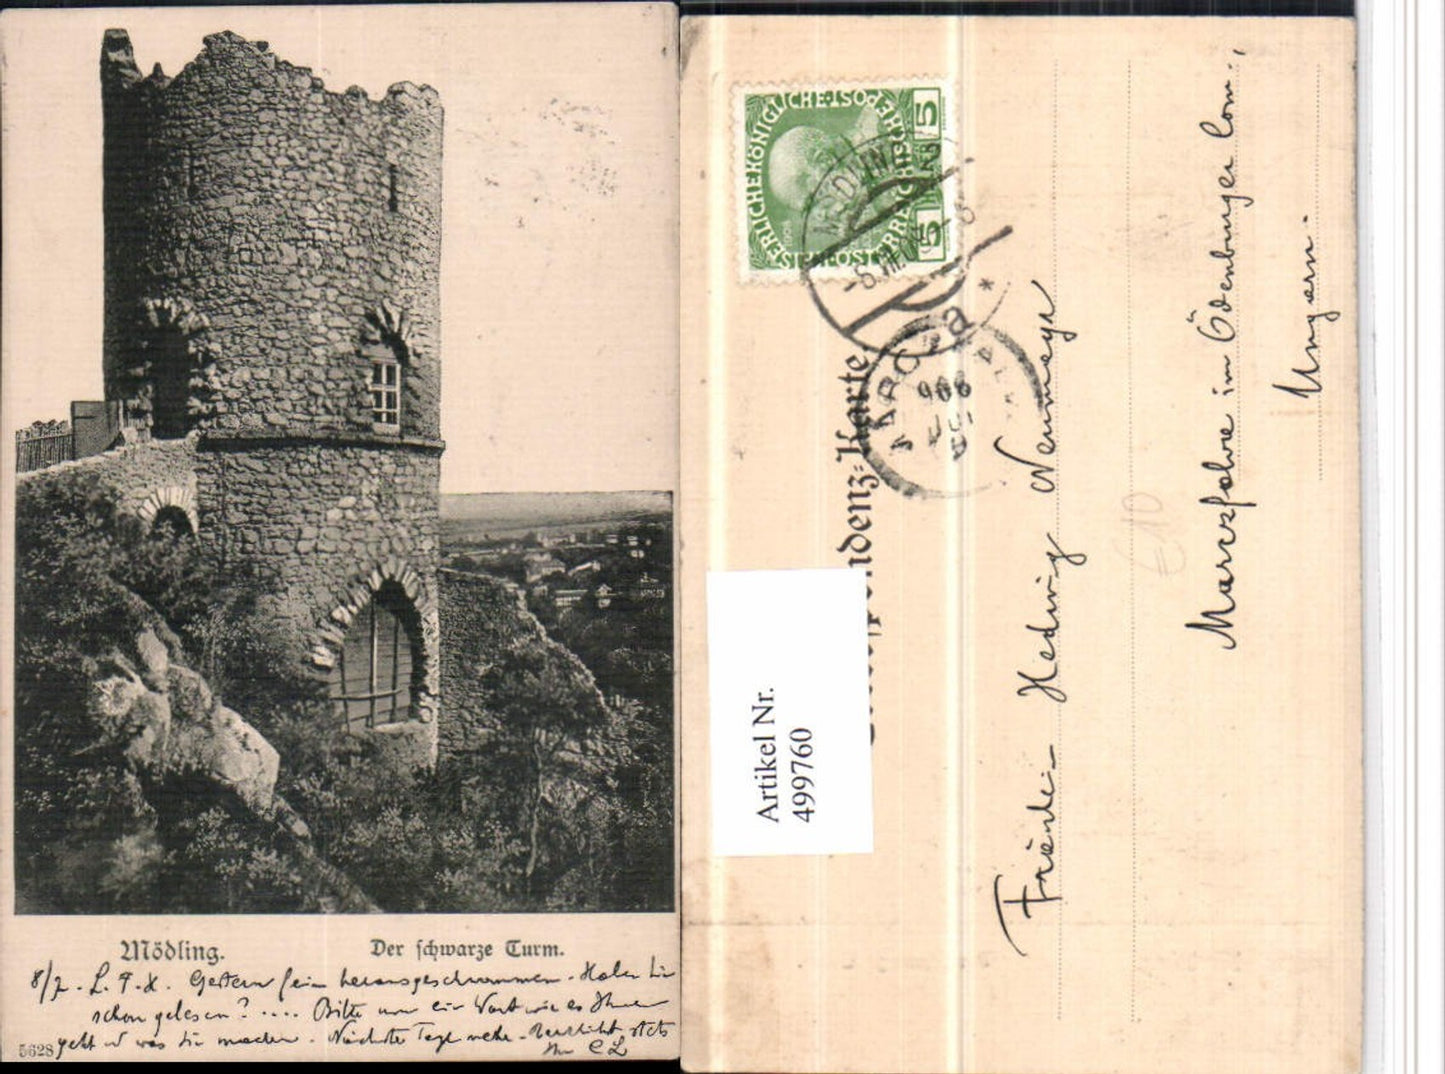 Mödling. Der schwarze Turm.
8/7. L. F. H. Gestern fein herausgeschwommen. Haben Sie
schon gelesen? .... Bitte nur ein Wort wie es Ihnen
geht u was Sie machen. Nächster Tage mehr. Herzlichst stets
Ihr C L
5628
KAISERLICHE KÖNIGLICHE ÖSTERREICHISCHE POST
5 5
MÖDLING
906
Korrespondenz-Karte
Artikel Nr.
499760
Fräulein Hedwig Neumeyer
€ 10
Marczfalva im Ödenburger Com.,
Ungarn.